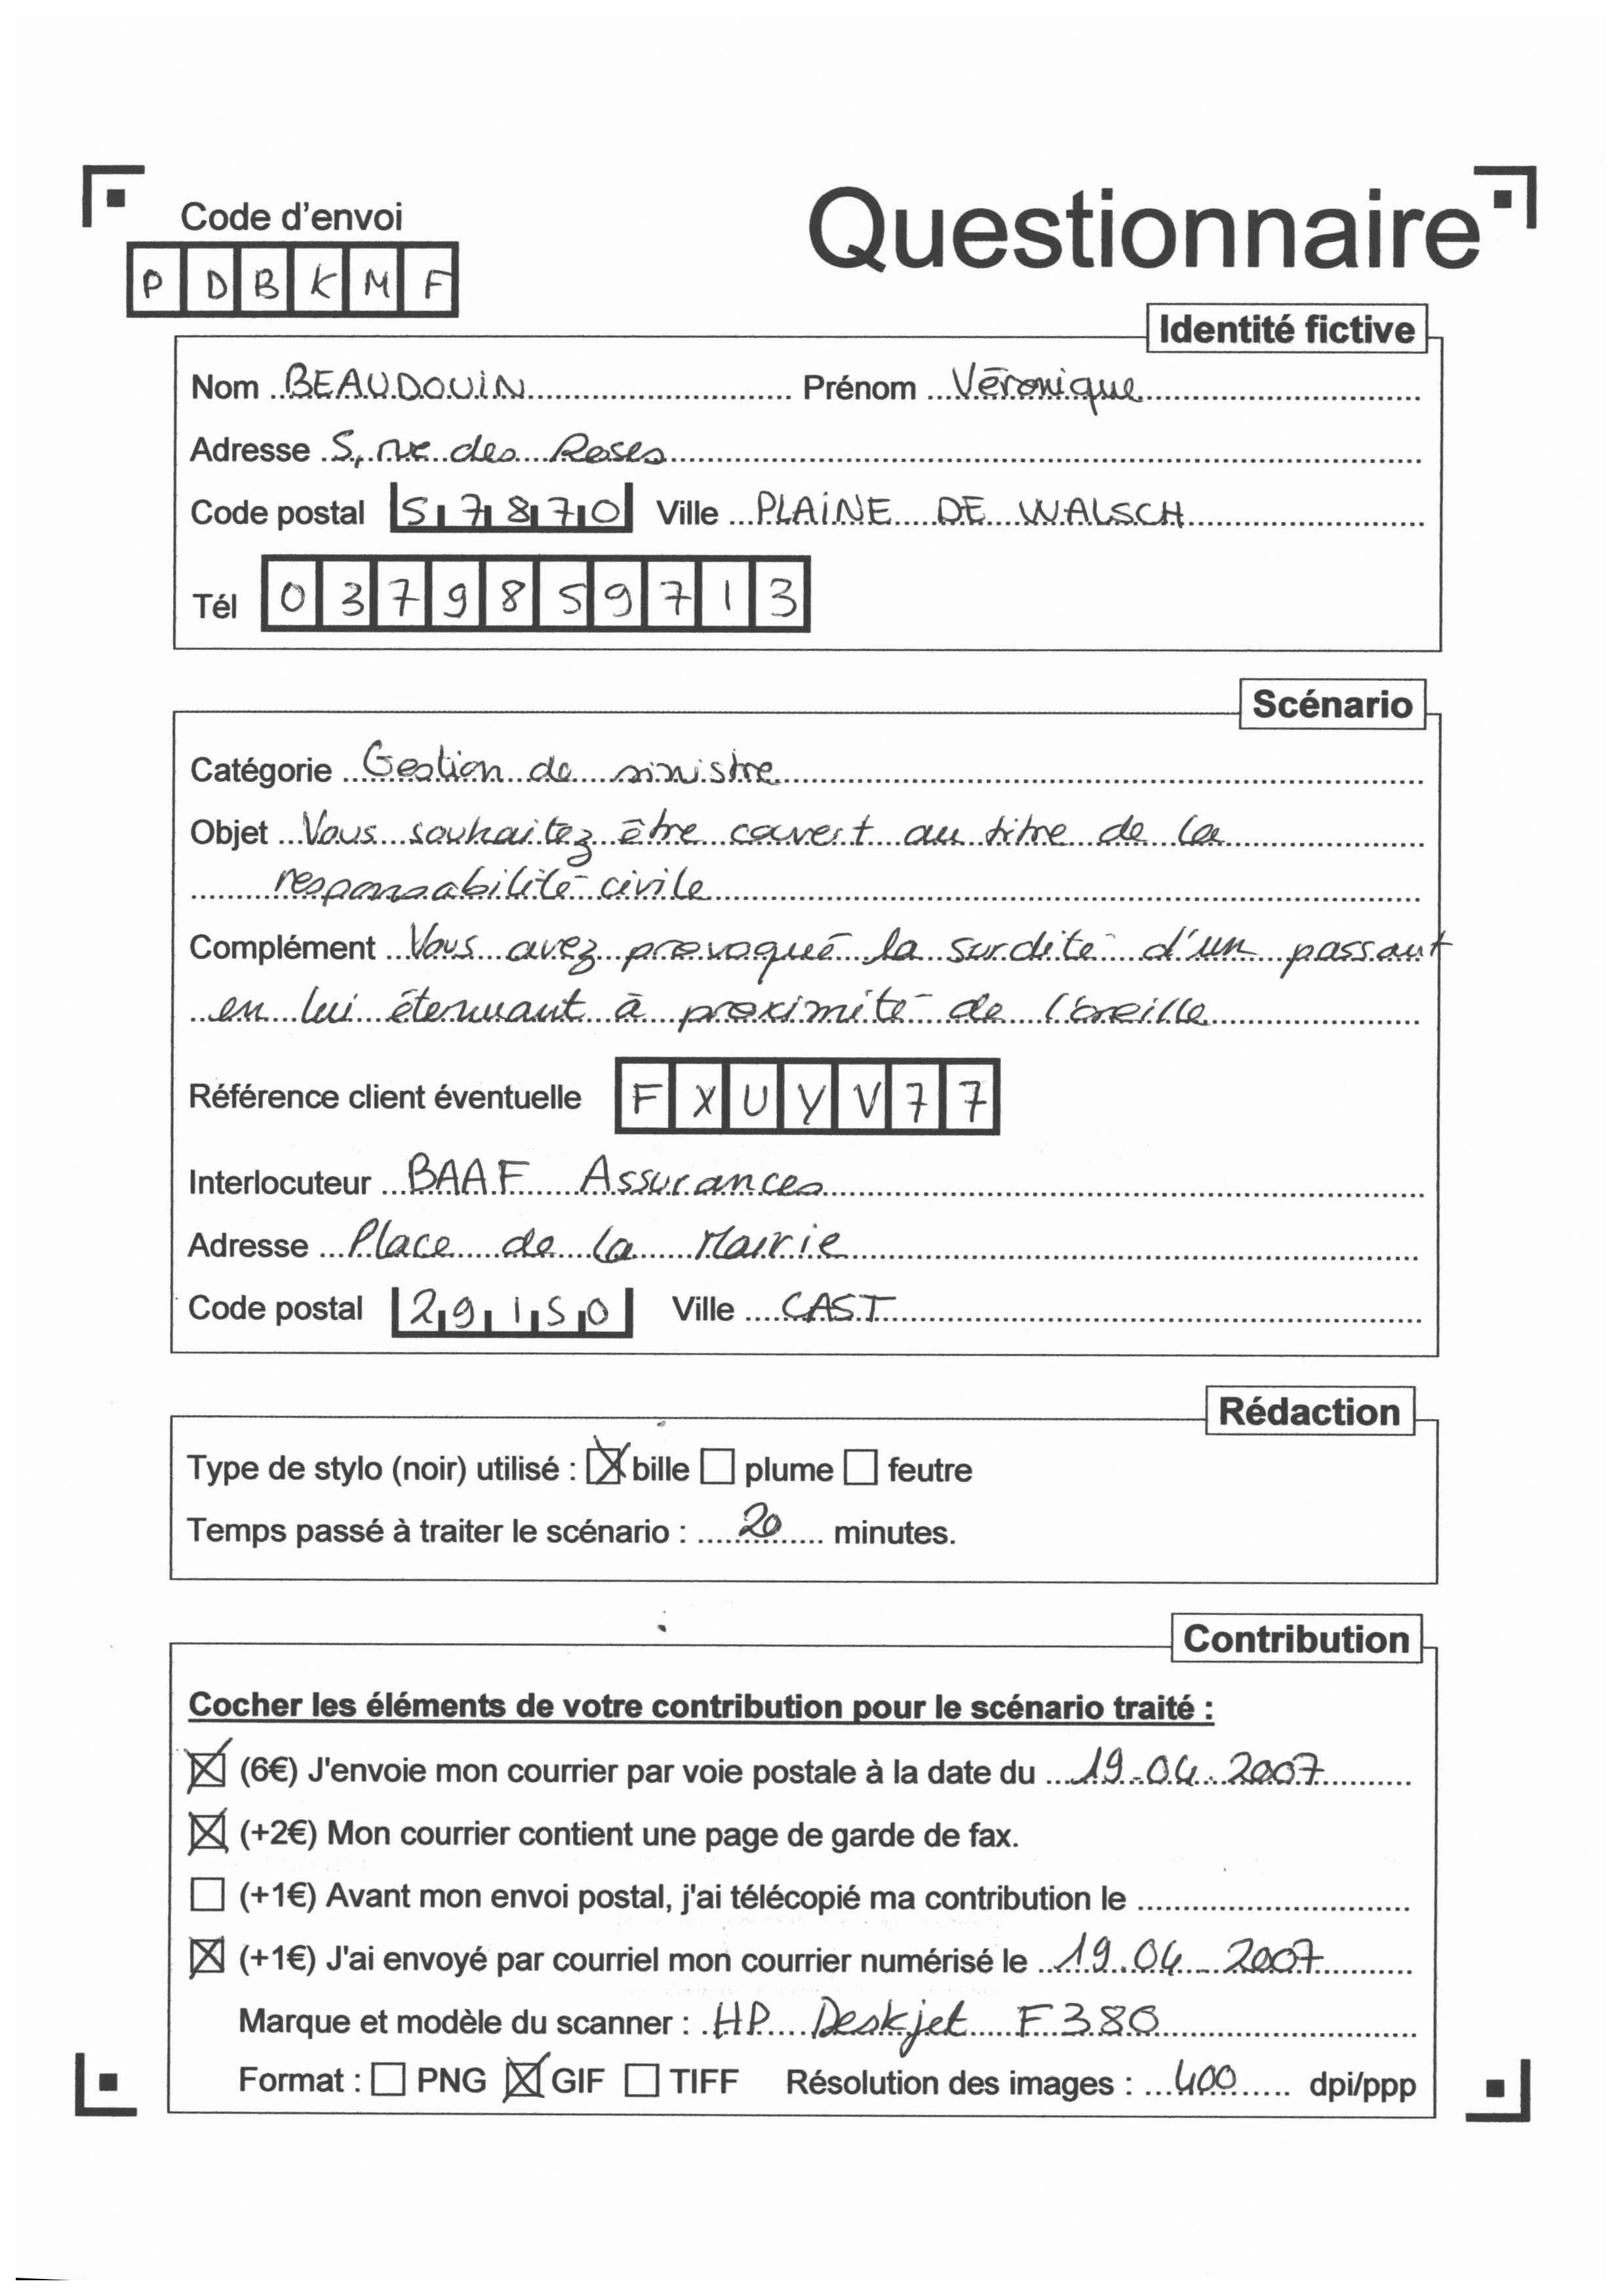 Code d'envoi
Questionnaire
P D B K M F
Identité fictive
Nom BEAUDOUIN Prénom Véronique
Adresse 5, rue des Roses
Code postal 57870 Ville PLAINE DE WALSCH
Tél 0379859713
Scénario
Catégorie Gestion de sinistre
Objet Vous souhaitez être couvert au titre de la
responsabilité civile
Complément Vous avez provoqué la surdité d'un passant
en lui éternuant à proximité de l'oreille
Référence client éventuelle FXUYV77
Interlocuteur BAAF Assurances
Adresse Place de la Mairie
Code postal 29150 Ville CAST
Rédaction
Type de stylo (noir) utilisé : ☒ bille ☐ plume ☐ feutre
Temps passé à traiter le scénario : 20 minutes.
Contribution
Cocher les éléments de votre contribution pour le scénario traité :
☒ (6€) J'envoie mon courrier par voie postale à la date du 19.04.2007
☒ (+2€) Mon courrier contient une page de garde de fax.
☐ (+1€) Avant mon envoi postal, j'ai télécopié ma contribution le
☒ (+1€) J'ai envoyé par courriel mon courrier numérisé le 19.04.2007
Marque et modèle du scanner : HP Deskjet F380
Format : ☐ PNG ☒ GIF ☐ TIFF Résolution des images : 400 dpi/ppp